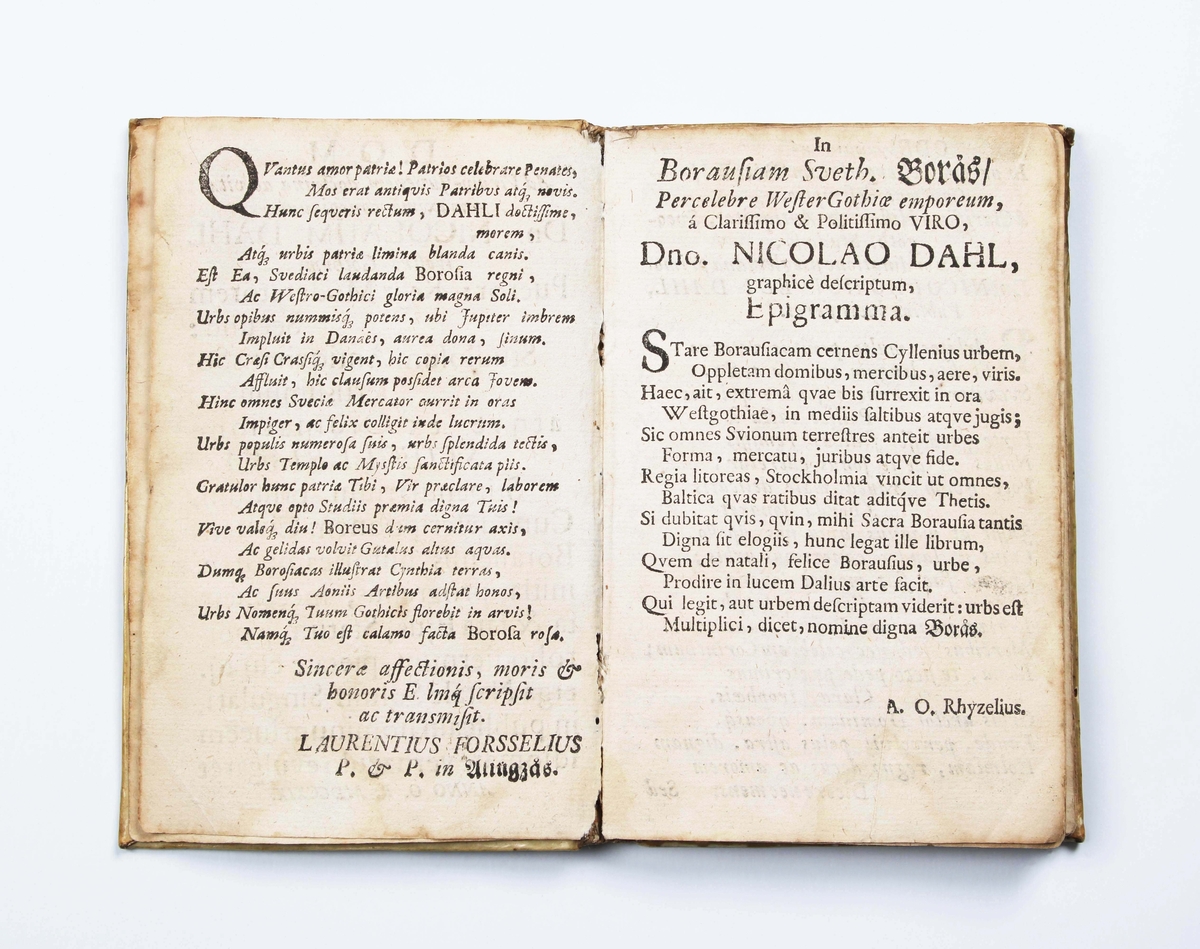 QVantus amor patriæ! Patrios celebrare Penates,
Mos erat antiqvis Patribvs atq́ꝫ novis.
Hunc ſeqveris rectum, DAHLI doctiſſime,
morem,
Atq́ꝫ urbis patriæ limina blanda canis.
Eſt Ea, Svediaci laudanda Borosia regni,
Ac Weſtro-Gothici gloria magna Soli.
Urbs opibus nummisq́ꝫ potens, ubi Jupiter imbrem
Impluit in Danaës, aurea dona, ſinum.
Hic Cræſi Craſſiq́ꝫ vigent, hic copia rerum
Affluit, hic clauſum poſſidet arca Jovem.
Hinc omnes Sveciæ Mercator currit in oras
Impiger, ac felix colligit inde lucrum.
Urbs populis numeroſa ſuis, urbs ſplendida tectis,
Urbs Templo ac Myſſtis ſanctificata piis.
Gratulor hunc patriæ Tibi, Vir præclare, laborem
Atqve opto Studiis præmia digna Tuis!
Vive valeq́ꝫ diu! Boreus dum cernitur axis,
Ac gelidas volvit Gutalus altus aqvas.
Dumqꝫ Boroſiacas illuſtrat Cynthia terras,
Ac ſuus Aoniis Artibus adſtat honos,
Urbs Nomenq́ꝫ Tuum Gothicis florebit in arvis!
Namq́ꝫ Tuo eſt calamo facta Borosa roſa.
Sinceræ affectionis, moris &
honoris E lmq́ ſcripſit
ac transmiſit.
LAURENTIUS FORSSELIUS
P. & P. in Alingzås.
In
Borauſiam Sveth. Borås/
Percelebre WeſterGothiæ emporeum,
á Clariſſimo & Politiſſimo VIRO,
Dno. NICOLAO DAHL,
graphicè deſcriptum,
Epigramma.
STare Borauſiacam cernens Cyllenius urbem,
Oppletam domibus, mercibus, aere, viris.
Haec, ait, extremâ qvae bis ſurrexit in ora
Weſtgothiae, in mediis ſaltibus atqve jugis;
Sic omnes Svionum terreſtres anteit urbes
Forma, mercatu, juribus atqve fide.
Regia litoreas, Stockholmia vincit ut omnes,
Baltica qvas ratibus ditat aditq́ve Thetis.
Si dubitat qvis, qvin, mihi Sacra Borauſia tantis
Digna ſit elogiis, hunc legat ille librum,
Qvem de natali, felice Borauſius, urbe,
Prodire in lucem Dalius arte facit.
Qui legit, aut urbem deſcriptam viderit: urbs eſt
Multiplici, dicet, nomine digna Borås.
A. O. Rhyzelius.